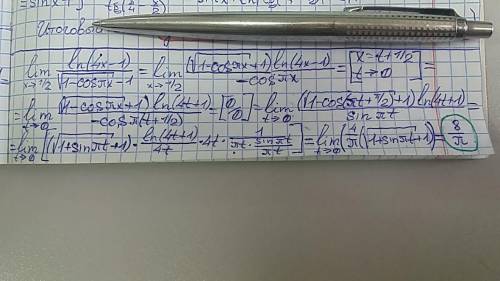 = lim x→1/2 ln(4x-1)/(√(1-cosπx)-1) = lim x→1/2 (√(1-cosπx)+1)ln(4x-1)/(-cosπx) = [x=t+1/2 t→0] =
= lim t→0 (√(1-cosπx)+1)ln(4t+1)/(-cosπ(t+1/2)) = [0/0] = lim t→0 (√(1-cos(πt+π/2))+1)ln(4t+1)/sinπt =
= lim t→0 [(√(1+sinπt)+1)·ln(4t+1)/4t·4t·1/(πt·sinπt/πt)] = lim t→0 (4/π(√(1+sinπt)+1)) = 8/π